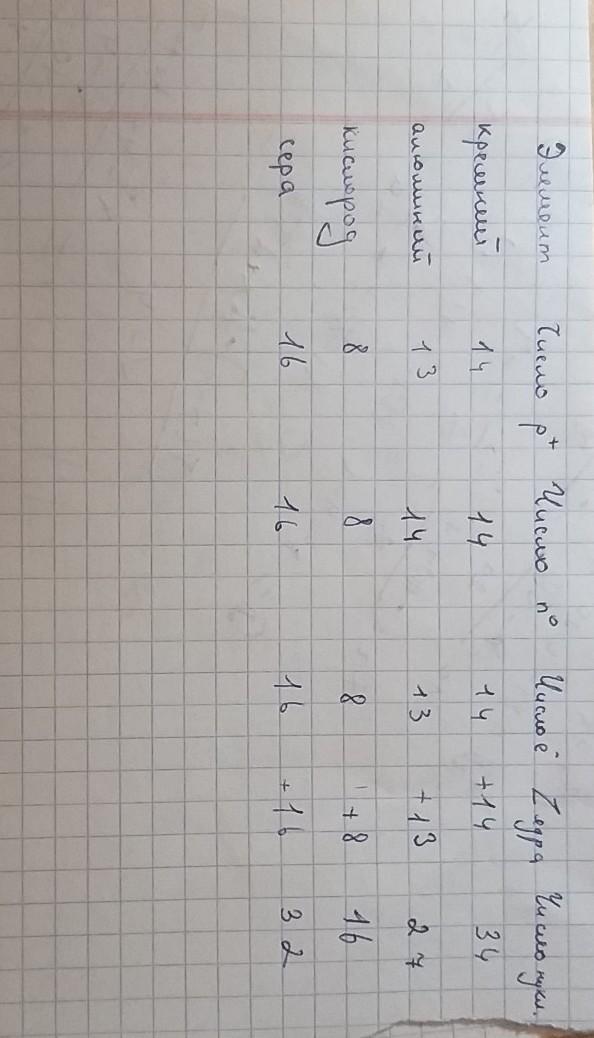 Элемент Число p+ Число n⁰ Число ē Z ядра Число нукл.
кремний 14 14 14 +14 34
алюминий 13 14 13 +13 27
кислород 8 8 8 +8 16
сера 16 16 16 +16 32